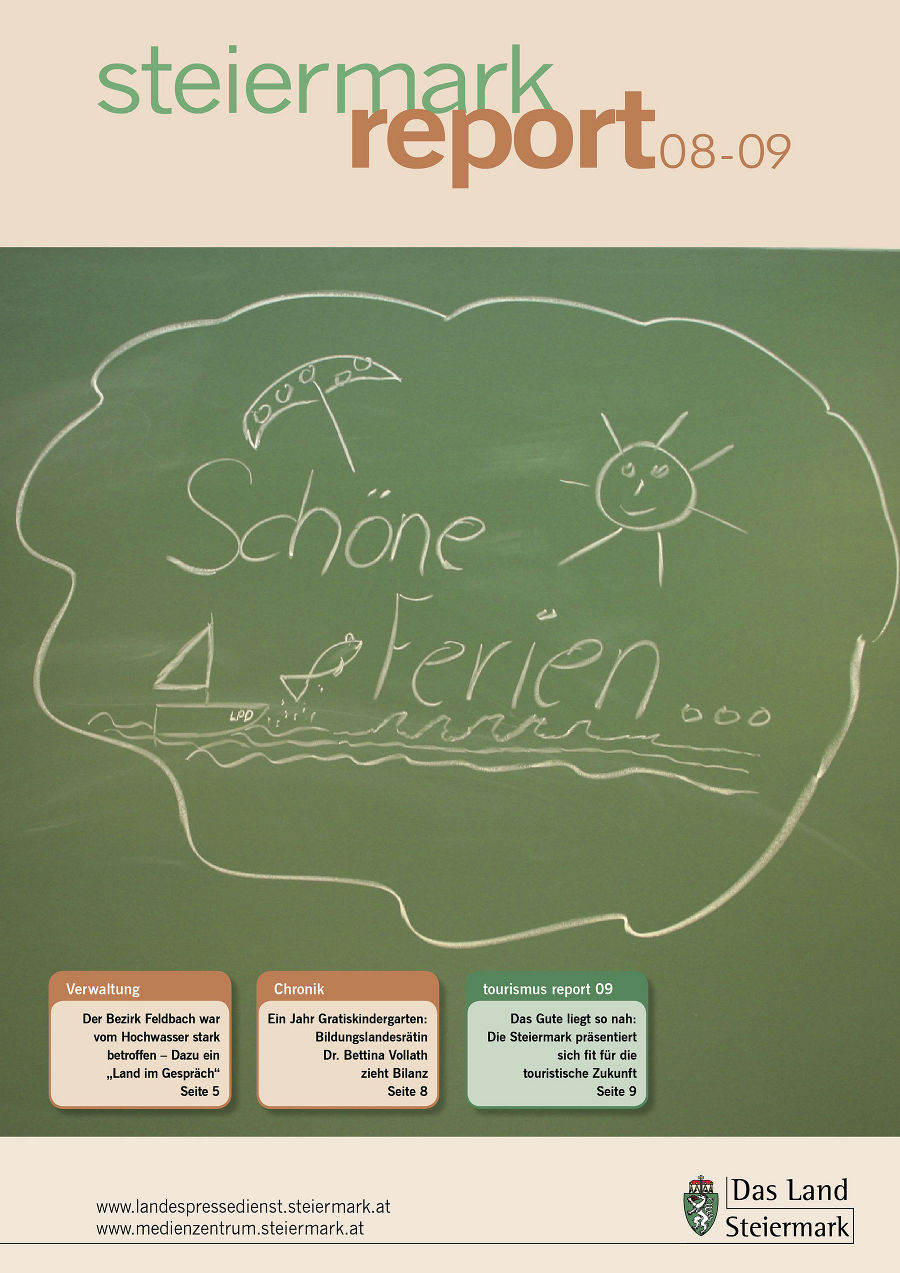 steiermark
report08-09
Schöne
Ferien...
LPD
Verwaltung
Der Bezirk Feldbach war
vom Hochwasser stark
betroffen – Dazu ein
„Land im Gespräch“
Seite 5
Chronik
Ein Jahr Gratiskindergarten:
Bildungslandesrätin
Dr. Bettina Vollath
zieht Bilanz
Seite 8
tourismus report 09
Das Gute liegt so nah:
Die Steiermark präsentiert
sich fit für die
touristische Zukunft
Seite 9
www.landespressedienst.steiermark.at
www.medienzentrum.steiermark.at
Das Land
Steiermark